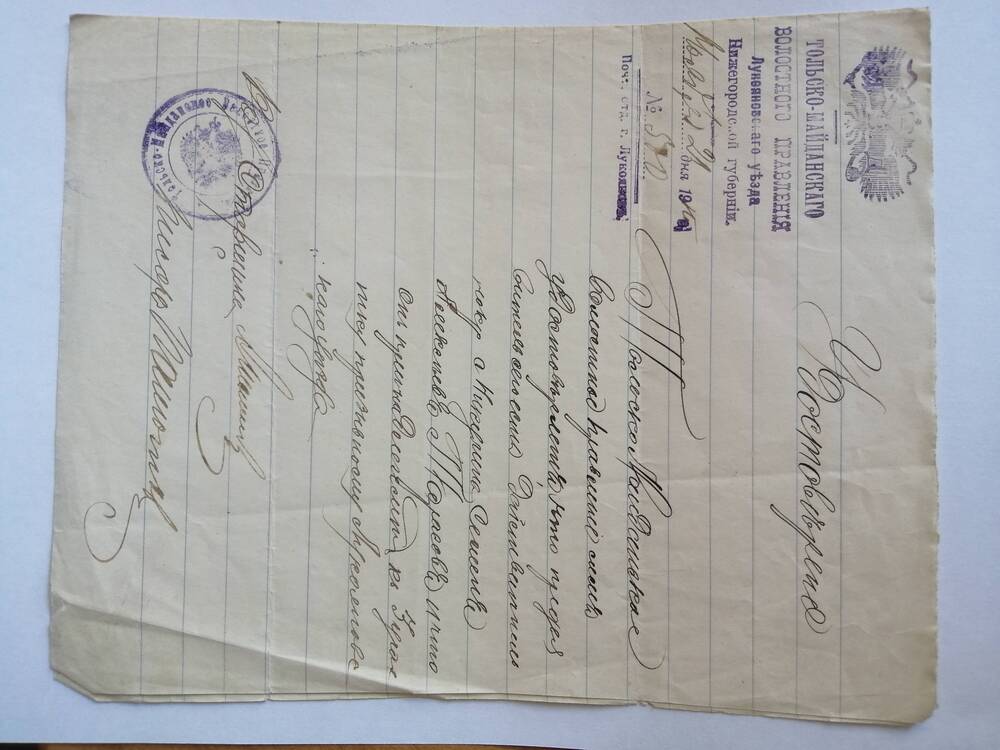 ТОЛЬСКО-МАЙДАНСКАГО
ВОЛОСТНОГО ПРАВЛЕНІЯ
Лукояновскаго уѣзда
Нижегородской губерніи.
дня 19
№ 500
Почт. отд. г. Лукояновъ.
Удостовѣрено
Толоско Майданское
волостное правленіе симъ
удостовѣряетъ, что предъя
витель сего есть действитель
с Никулина, Семенъ
Алексѣевъ Тарасовъ и что
онъ принадлежитъ къ 3 учас
тку призывному Лукояновс
каго уѣзда
Старшина
Писарь